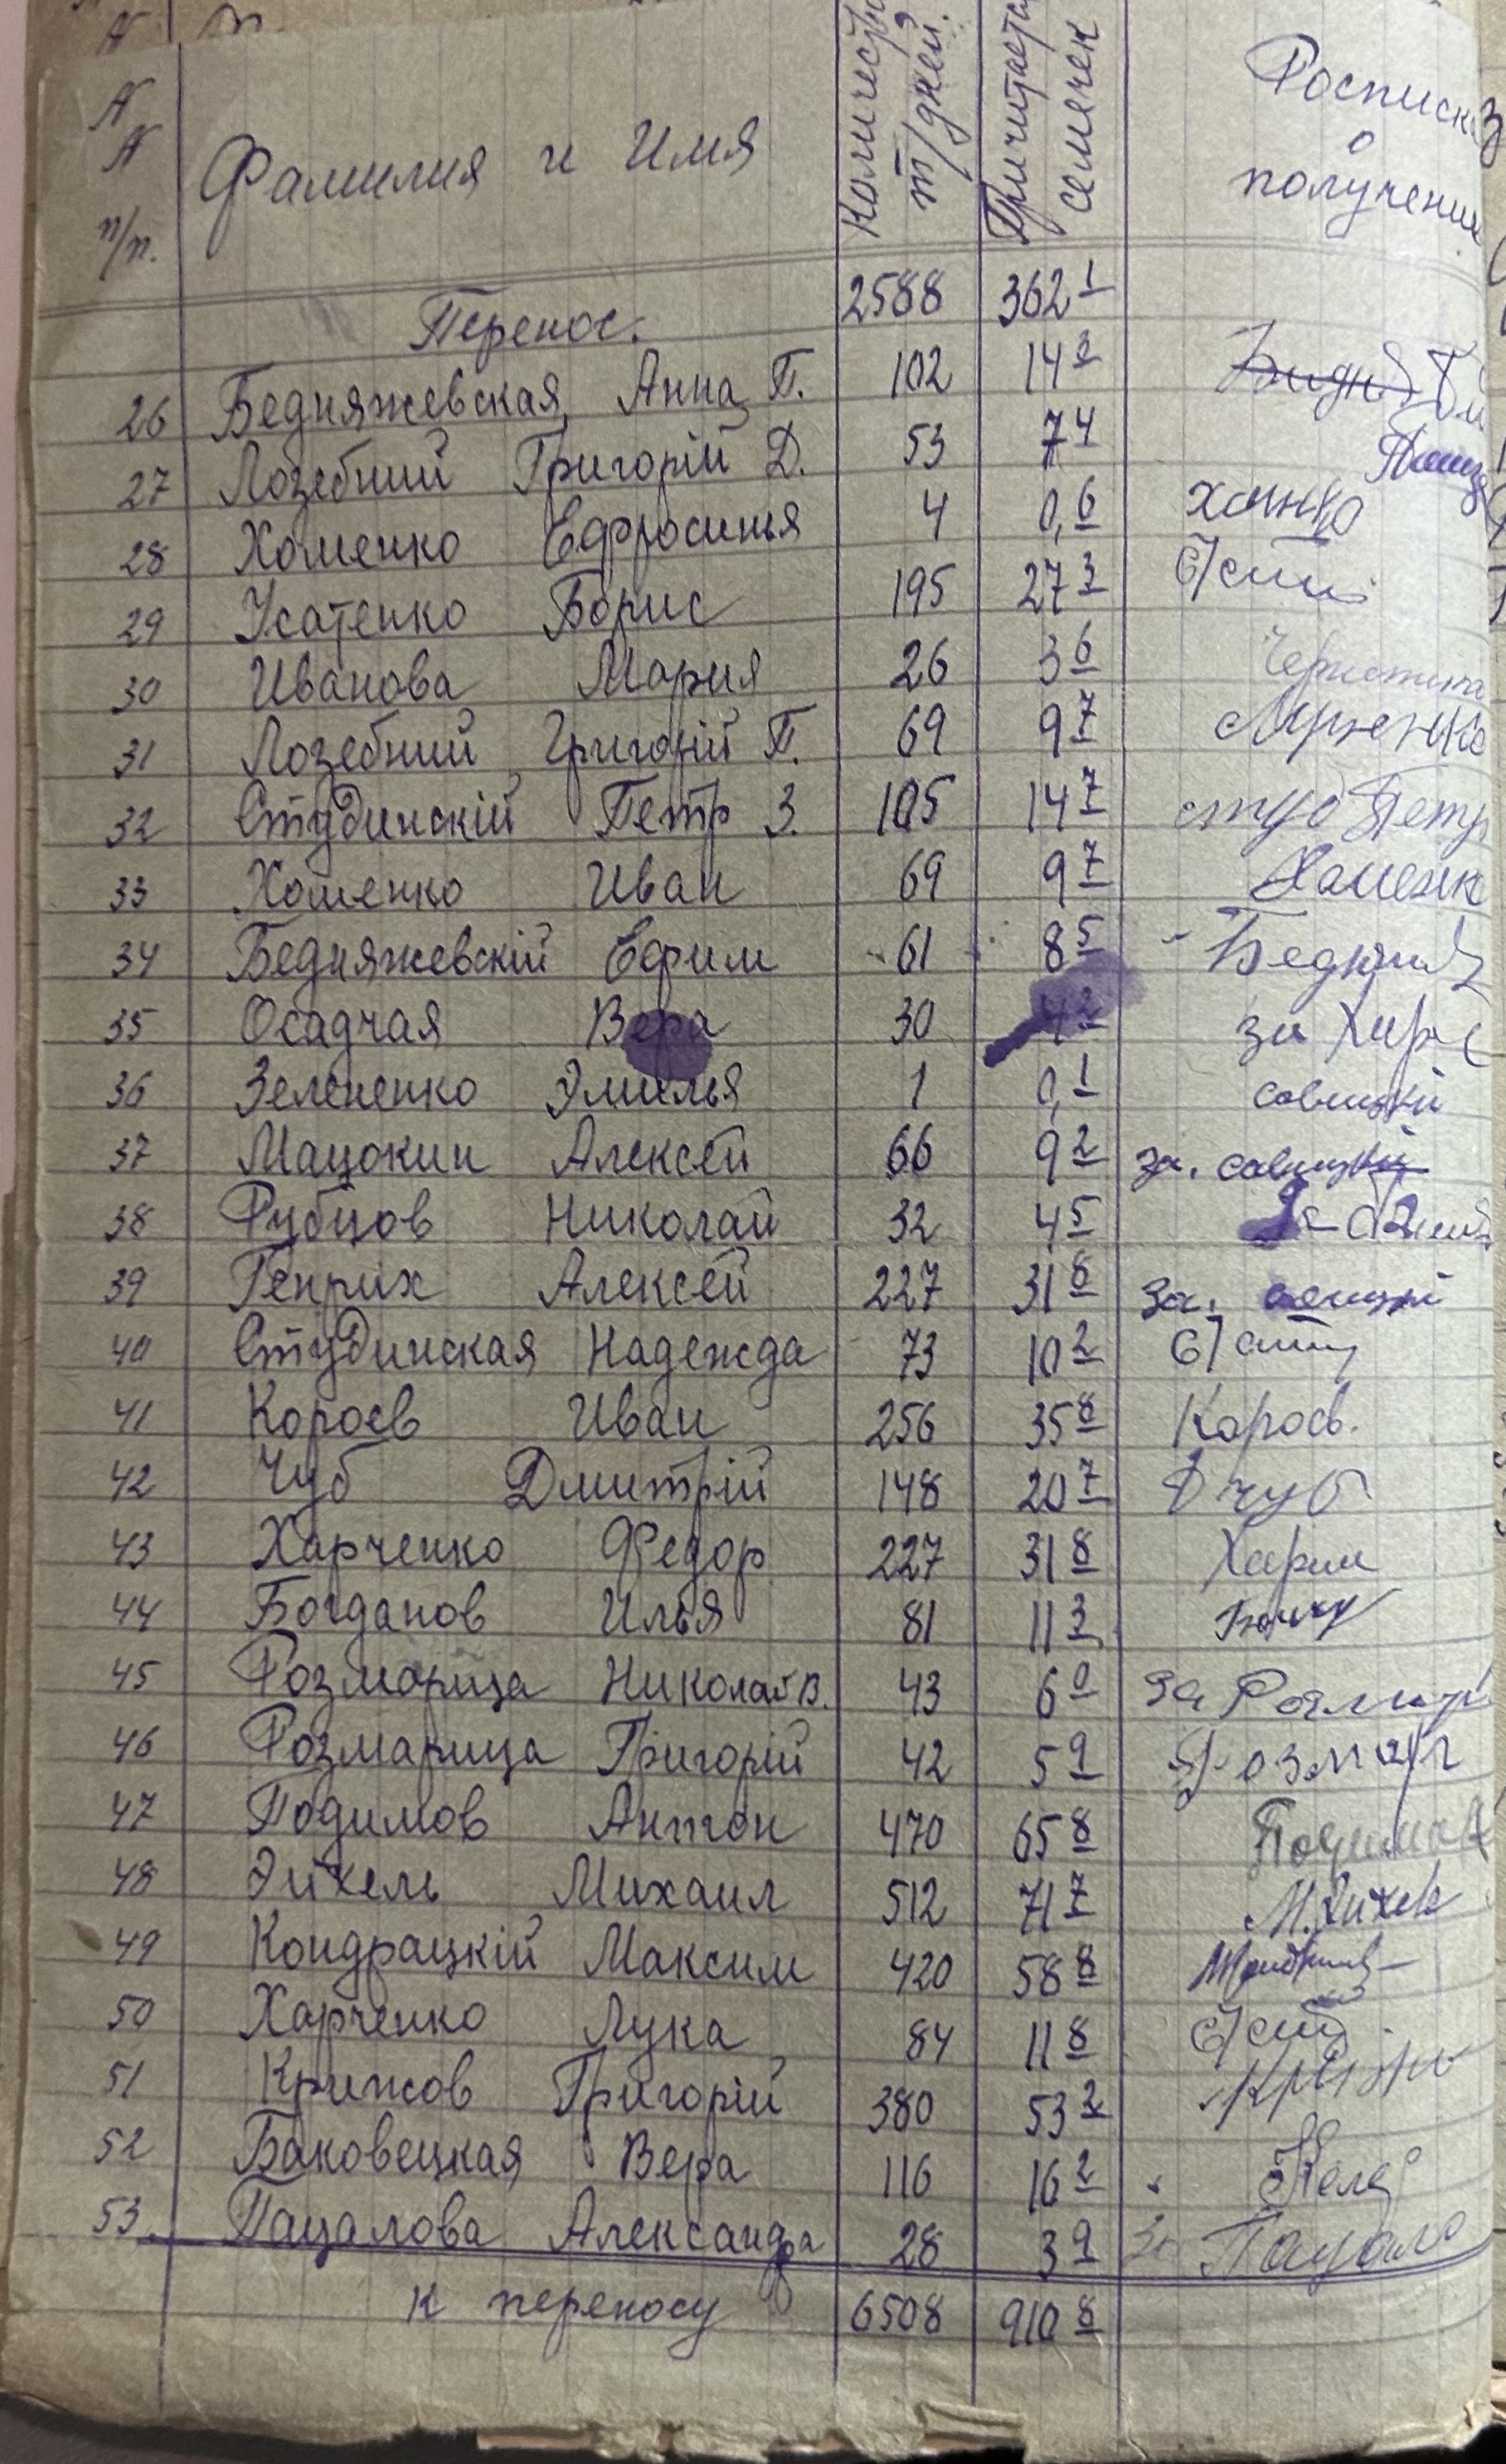 № № п/п. Фамилия и Имя Количество т/дней. Причитается семечек Росписка о получении
Перенос. 2588 362 1
26 Бедняжевская Анна П. 102 14 3
27 Лозебний Григорій Д. 53 7 4
28 Хоменко Ефросинья 4 0,6
29 Усатенко Борис 195 27 3
30 Иванова Мария 26 3 6
31 Лозебний Григорій П. 69 9 7
32 Студинскій Петр З. 105 14 7 студ Петр
33 Хоменко Иван 69 9 7 Хоменк
34 Бедняжевскій Ефим 61 8 5
35 Осадчая Вера 30 4 2 за Харч
36 Зелененко Эмилья 1 0,1 савицкій
37 Мацокин Алексей 66 9 2 за. савицкій
38 Рубцов Николай 32 4 5
39 Генрих Алексей 227 31 8 за.
40 Студинская Надежда 73 10 2
41 Короев Иван 256 35 8 Короев.
42 Чуб Дмитрій 148 20 7 Д чуб
43 Харченко Федор 227 31 8
44 Богданов Илья 81 11 3
45 Розмарица Николай В. 43 6 0 за Розмар
46 Розмарица Григорій 42 5 9 Розмар
47 Подимов Антон 470 65 8
48 Эйхель Михаил 512 71 7 М. Эихель
49 Кондрацкій Максим 420 58 8
50 Харченко Лука 84 11 8
51 Крижов Григорій 380 53 2
52 Баковецкая Вера 116 16 2
53. Пацалова Александра 28 3 9 За Пацало
к переносу 6508 910 8